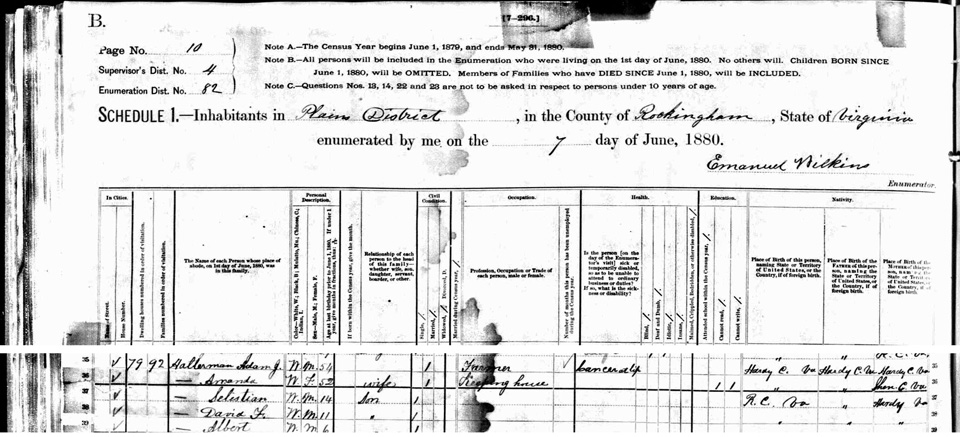 B.
[7-296.]
Page No. 10
Supervisor's Dist. No. 4
Enumeration Dist. No. 82
Note A.—The Census Year begins June 1, 1879, and ends May 31, 1880.
Note B.—All persons will be included in the Enumeration who were living on the 1st day of June, 1880. No others will. Children BORN SINCE
June 1, 1880, will be OMITTED. Members of Families who have DIED SINCE June 1, 1880, will be INCLUDED.
Note C.—Questions Nos. 13, 14, 22 and 23 are not to be asked in respect to persons under 10 years of age.
SCHEDULE 1.—Inhabitants in Plains District, in the County of Rockingham, State of Virginia
enumerated by me on the 7 day of June, 1880.
Emanuel Wilkins
Enumerator.
In Cities.
Name of Street.
House Number.
Dwelling houses numbered in order of visitation.
Families numbered in order of visitation.
The Name of each Person whose place of
abode, on 1st day of June, 1880, was
in this family.
Personal
Description.
Color—White, W.; Black, B.; Mulatto, Mu.; Chinese, C.;
Indian, I.
Sex—Male, M.; Female, F.
Age at last birthday prior to June 1, 1880. If under 1
year, give months in fractions, thus:
If born within the Census year, give the month.
Relationship of each
person to the head
of this family—
whether wife, son,
daughter, servant,
boarder, or other.
Civil
Condition.
Single, /
Married, /
Widowed, / Divorced, D.
Married during Census year, /
Occupation.
Profession, Occupation or Trade of
each person, male or female.
Number of months this person has been unemployed
during the Census year.
Health.
Is the person [on the
day of the Enumera-
tor's visit] sick or
temporarily disabled,
so as to be unable
to attend to ordinary
business or duties?
If so, what is the sick-
ness or disability?
Blind, /
Deaf and Dumb, /
Idiotic, /
Insane, /
Maimed, Crippled, Bedridden, or otherwise disabled, /
Education.
Attended school within the Census year, /
Cannot read, /
Cannot write, /
Nativity.
Place of Birth of this person,
naming State or Territory
of United States, or the
Country, if of foreign birth.
Place of Birth of the
FATHER of this per-
son, naming the
State or Territory of
United States, or the
Country, if of
foreign birth.
Place of Birth of the
79 92 Halterman Adam J. W. M. 54 1 Farmer Hardy C. Va Hardy C. Va Hardy C Va
— Amanda W. F. 52 wife 1 Keeping house 1 1 " " Shen C. Va
— Selestian W. M. 14 Son 1 R. C. Va " Hardy Va
— David F. W. M. 11 " 1 " " "
— Albert W M 6 1